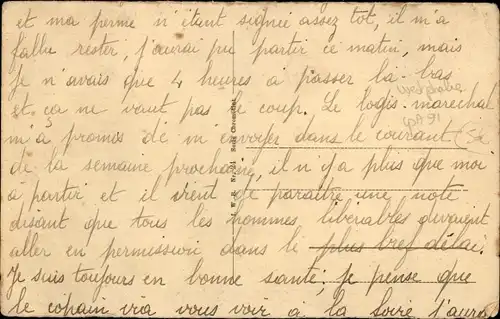 et ma perme n'étant signée assez tot, il m'a
fallu rester, j'aurai pu partir ce matin, mais
je n'avais que 4 heures a passer là-bas
et ça ne vaut pas le coup. Le logis-marechal
m'a promis de m'envoyer dans le courant
de la semaine prochaine, il n'y a plus que moi
à partir et il vient de paraître une note
disant que tous les hommes libérables devaient
aller en permission dans le plus bref délai.
Je suis toujours en bonne santé; je pense que
le copain ira vous voir à la Loire j'aurai